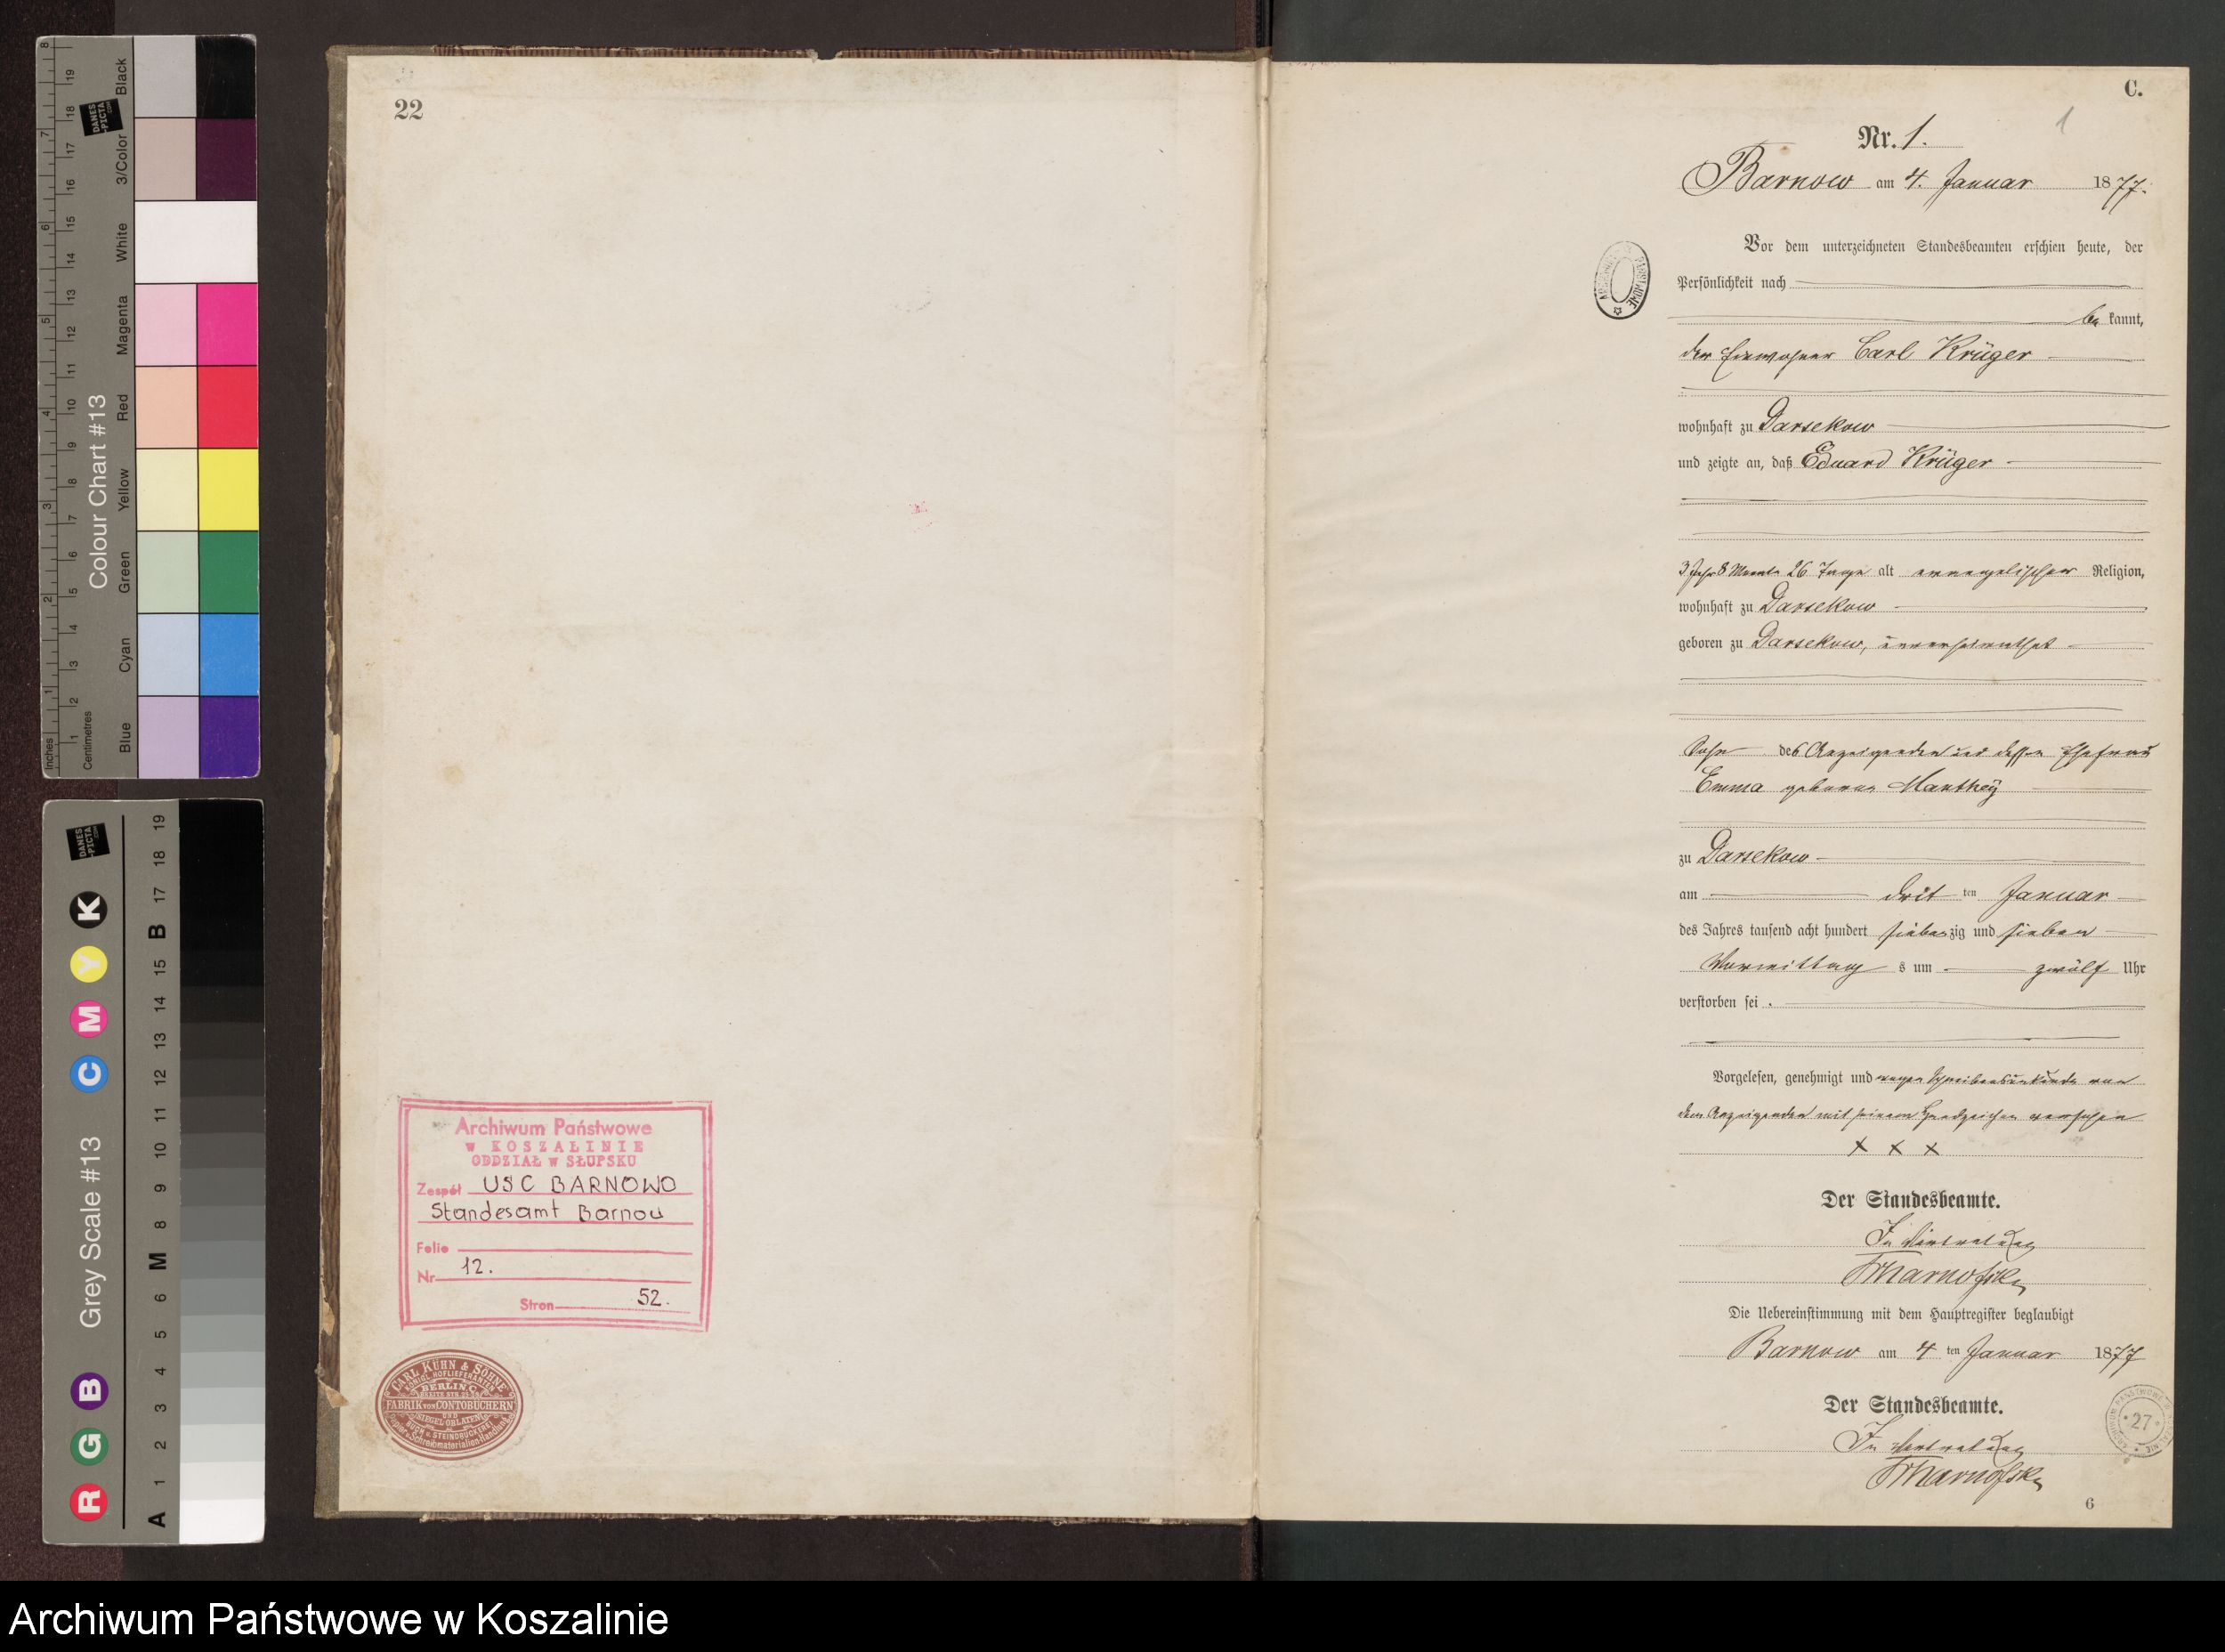 22
Archiwum Państwowe
w KOSZALINIE
ODDZIAŁ w SŁUPSKU
Zespół USC BARNOWO
Standesamt Barnow
Folio
Nr 12.
Stron 52.
CARL KÜHN & SÖHNE
KÖNIGL. HOFLIEFERANTEN
BERLIN C.
FABRIK von CONTOBÜCHERN
UND
SIEGEL-OBLATEN
BUCH u. STEINDRUCKEREI
Schreibmaterialien-Handlung
C.
1
Nr. 1.
Barnow am 4. Januar 1877.
Vor dem unterzeichneten Standesbeamten erschien heute, der
Persönlichkeit nach
be kannt,
der Einwohner Carl Krüger
wohnhaft zu Darsekow
und zeigte an, daß Eduard Krüger
3 Jahr 8 Monate 26 Tage alt evangelischer Religion,
wohnhaft zu Darsekow
geboren zu Darsekow, unverheirathet
Sohn des Anzeigenden und dessen Ehefrau
Emma geborene Manthey
zu Darsekow
am dritten Januar
des Jahres tausend acht hundert siebenzig und sieben
Vormittags um zwölf Uhr
verstorben sei.
Vorgelesen, genehmigt und wegen Schreibensunkunde von
dem Anzeigenden mit seinem Handzeichen versehen
x x x
Der Standesbeamte.
In Vertretung
Die Uebereinstimmung mit dem Hauptregister beglaubigt
Barnow am 4 ten Januar 1877
Der Standesbeamte.
In Vertretung
27
6
Colour Chart #13
Blue Cyan Green Yellow Red Magenta White 3/Color Black
Inches
Centimetres
DANES-PICTA.COM
Grey Scale #13
R G B C M Y K
A 1 2 3 4 5 6 M 8 9 10 11 12 13 14 15 B 17 18 19
Archiwum Państwowe w Koszalinie